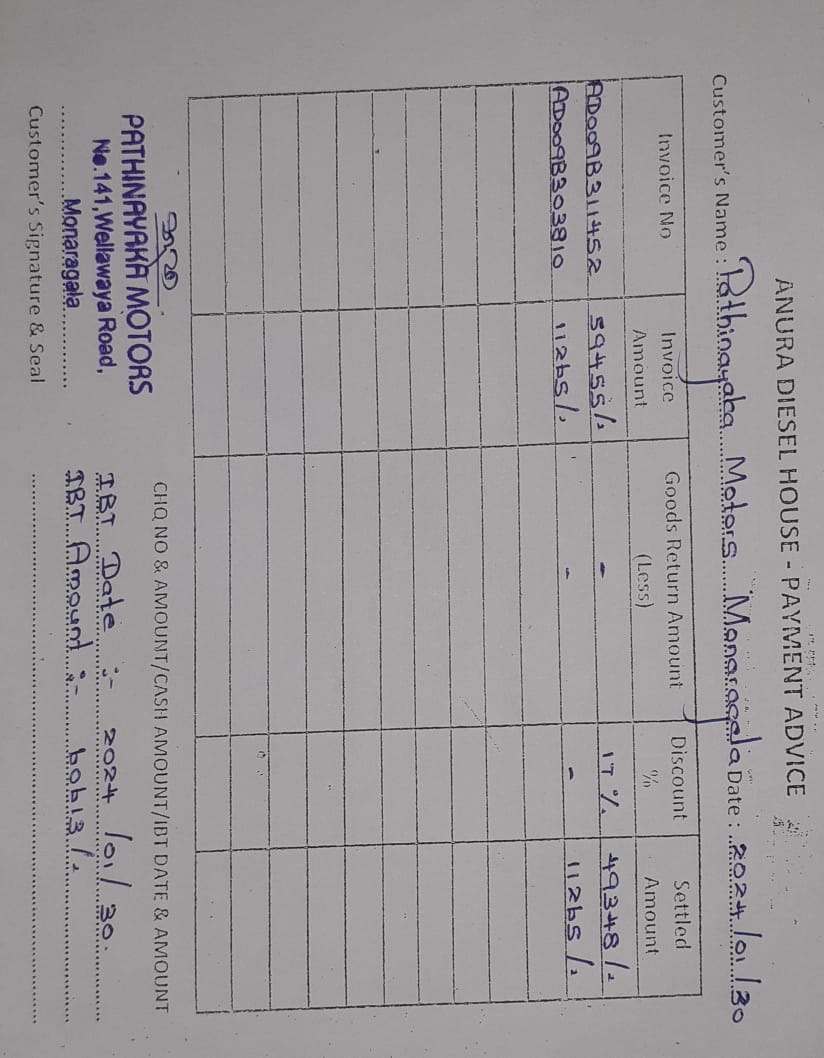 ANURA DIESEL HOUSE - PAYMENT ADVICE
Customer's Name : Pathinayaka Motors Monaragala Date : 2024/01/30
Invoice No Invoice Amount Goods Return Amount (Less) Discount % Settled Amount
AD009B311452 59455/. - 17%. 49348/.
AD009B303810 11265/. - - 11265/.
CHQ NO & AMOUNT/CASH AMOUNT/IBT DATE & AMOUNT
PATHINAYAKA MOTORS
No.141,Wellawaya Road,
Monaragala
Customer's Signature & Seal
IBT Date :- 2024/01/30.
IBT Amount :- 60613/.